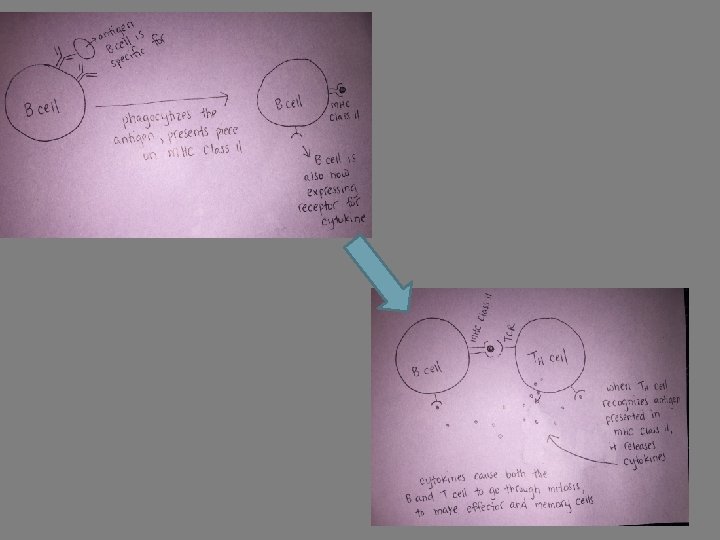 antigen
B cell is
specific for
B cell
phagocytizes the
antigen, presents piece
on MHC Class II
B cell
MHC
Class II
B cell is
also now
expressing
receptor for
cytokine
MHC Class II
TCR
B cell
TH cell
when TH cell
recognizes antigen
presented in
MHC Class II,
it releases
cytokines
cytokines cause both the
B and T cell to go through mitosis,
to make effector and memory cells.